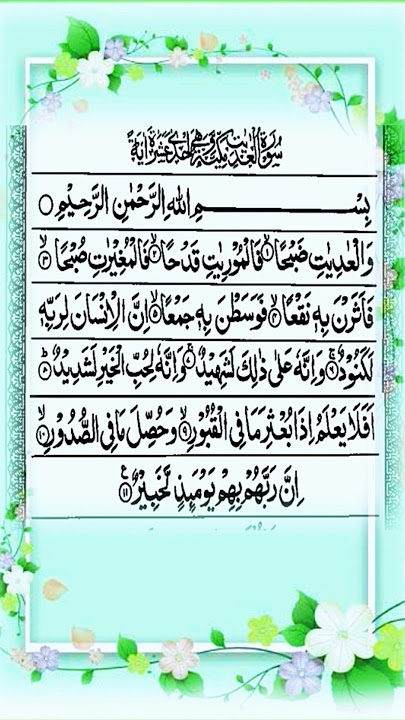 سُوْرَةُ الْعٰدِيٰتِ مَكِّيَّةٌ وَّهِيَ اِحْدٰى عَشْرَةَ اٰيَةً
بِسْمِ اللهِ الرَّحْمٰنِ الرَّحِيْمِ ○
وَالْعٰدِيٰتِ ضَبْحًا ۙ۱ فَالْمُوْرِيٰتِ قَدْحًا ۙ۲ فَالْمُغِيْرٰتِ صُبْحًا ۙ۳
فَاَثَرْنَ بِهٖ نَقْعًا ۙ۴ فَوَسَطْنَ بِهٖ جَمْعًا ۙ۵ اِنَّ الْاِنْسَانَ لِرَبِّهٖ
لَكَنُوْدٌ ۚ۶ وَاِنَّهٗ عَلٰى ذٰلِكَ لَشَهِيْدٌ ۚ۷ وَاِنَّهٗ لِحُبِّ الْخَيْرِ لَشَدِيْدٌ ؕ۸
اَفَلَا يَعْلَمُ اِذَا بُعْثِرَ مَا فِى الْقُبُوْرِ ۙ۹ وَحُصِّلَ مَا فِى الصُّدُوْرِ ۙ۱۰
اِنَّ رَبَّهُمْ بِهِمْ يَوْمَئِذٍ لَّخَبِيْرٌ ࣖ۱۱